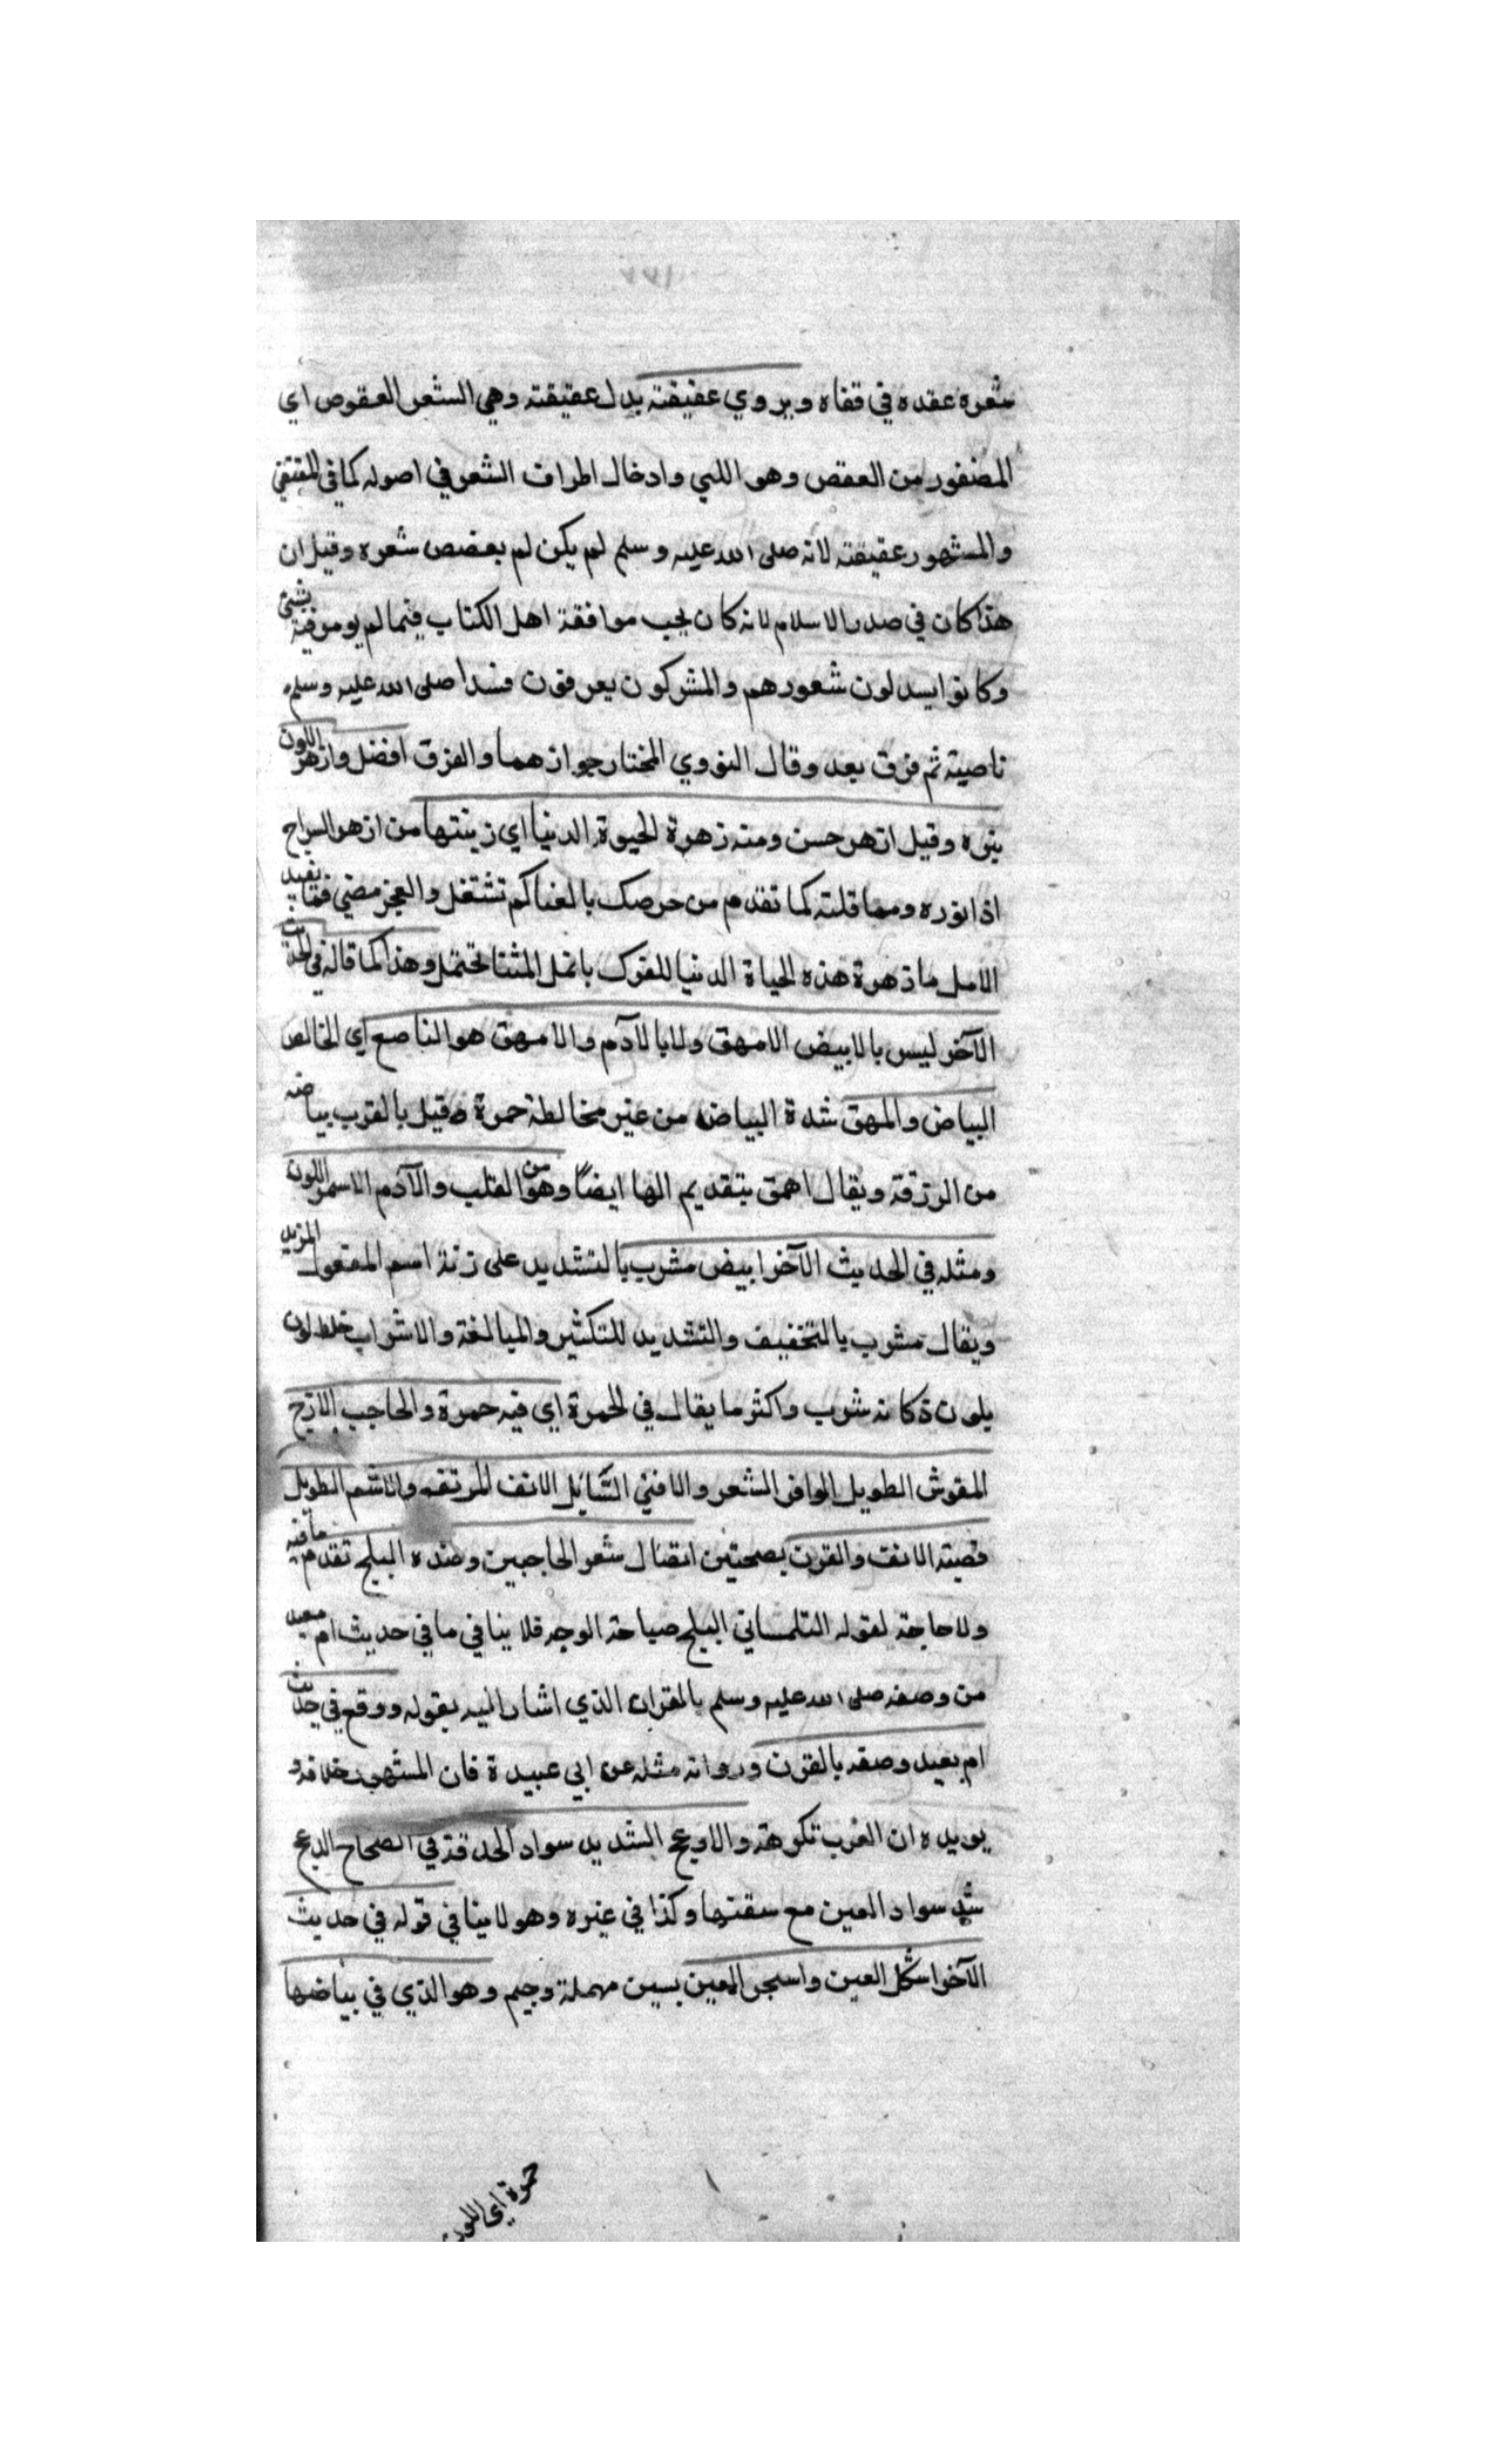 ١٧٧
شعره عقده في قفاه ويروي عقيقته بدل عقيقته وهي الشعر العقوص اي
المضفور من العقص وهو اللي وادخال اطراف الشعر في اصوله كما في المقتفي
والمشهور عقيقته لانه صلى الله عليه وسلم لم يكن لم يعقص شعره وقيل ان
هذا كان في صدر الاسلام لانه كان يحب موافقة اهل الكتاب فيما لم يومر فيه بشئ
وكانوا يسدلون شعورهم والمشركون يعرفون فسدا صلى الله عليه وسلم
ناصيته ثم فرق بعد وقال النووي المختار جوازهما والفرق افضل وازهر اللون
نيره وقيل ازهر حسن ومنه زهرة الحيوة الدنيا اي زينتها من ازهر السراج
اذا نوره ومما قلته كما تقدم من حرصك بالغنا كم تشتغل والعجز مضي فما يفيد
الامل ما زهرة هذه الحياة الدنيا للفرك بانمل المثنا تحتمل وهذا كما قاله في الحديث
الآخر ليس بالابيض الامهق ولا بالآدم والامهق هو الناصع اي الخالص
البياض والمهق شدة البياض من غير مخالطة حمرة وقيل بالقرب بياضه
من الزرقة ويقال اهمق بتقديم الها ايضا وهو من القلب والآدم الاسمر اللون
ومثله في الحديث الآخر ابيض مشرب بالتشديد على زنة اسم المفعول المزيد
ويقال مشرب بالتخفيف والتشديد للتكثير والمبالغة والاشراب خلط لون
بلون كانه شوب واكثر ما يقال في الحمرة اي فيه حمرة والحاجب الازج
المقوش الطويل الوافر الشعر والاقني السايل الانف المرتفع والاشم الطويل
قصبة الانف والقرن بصحتين اتصال شعر الحاجبين وضده البلج تقدم ما فيه
ولا حاجة لقوله التلمساني البلج صباحة الوجه فلا ينافي ما في حديث ام معبد
من وصفه صلى الله عليه وسلم بالقران الذي اشار اليه بقوله ووقع في حديث
ام معبد وصفه بالقرن ورواته مثله عن ابي عبيدة فان المشهور خلافه و
يويده ان العرب تكرهه والادعج الشديد سواد الحدقة في الصحاح الدعج
شد سواد العين مع سقتها وكذا في غيره وهو لا ينافي قوله في حديث
الآخر اشكل العين واسجر العين بسين مهملة وجيم وهو الذي في بياضها
حمرة اي اللون